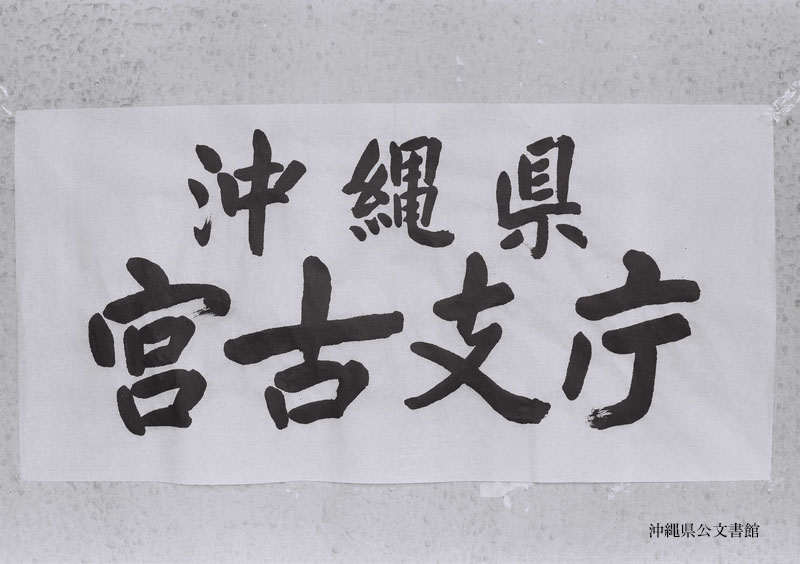 沖縄県
宮古支庁
沖縄県公文書館